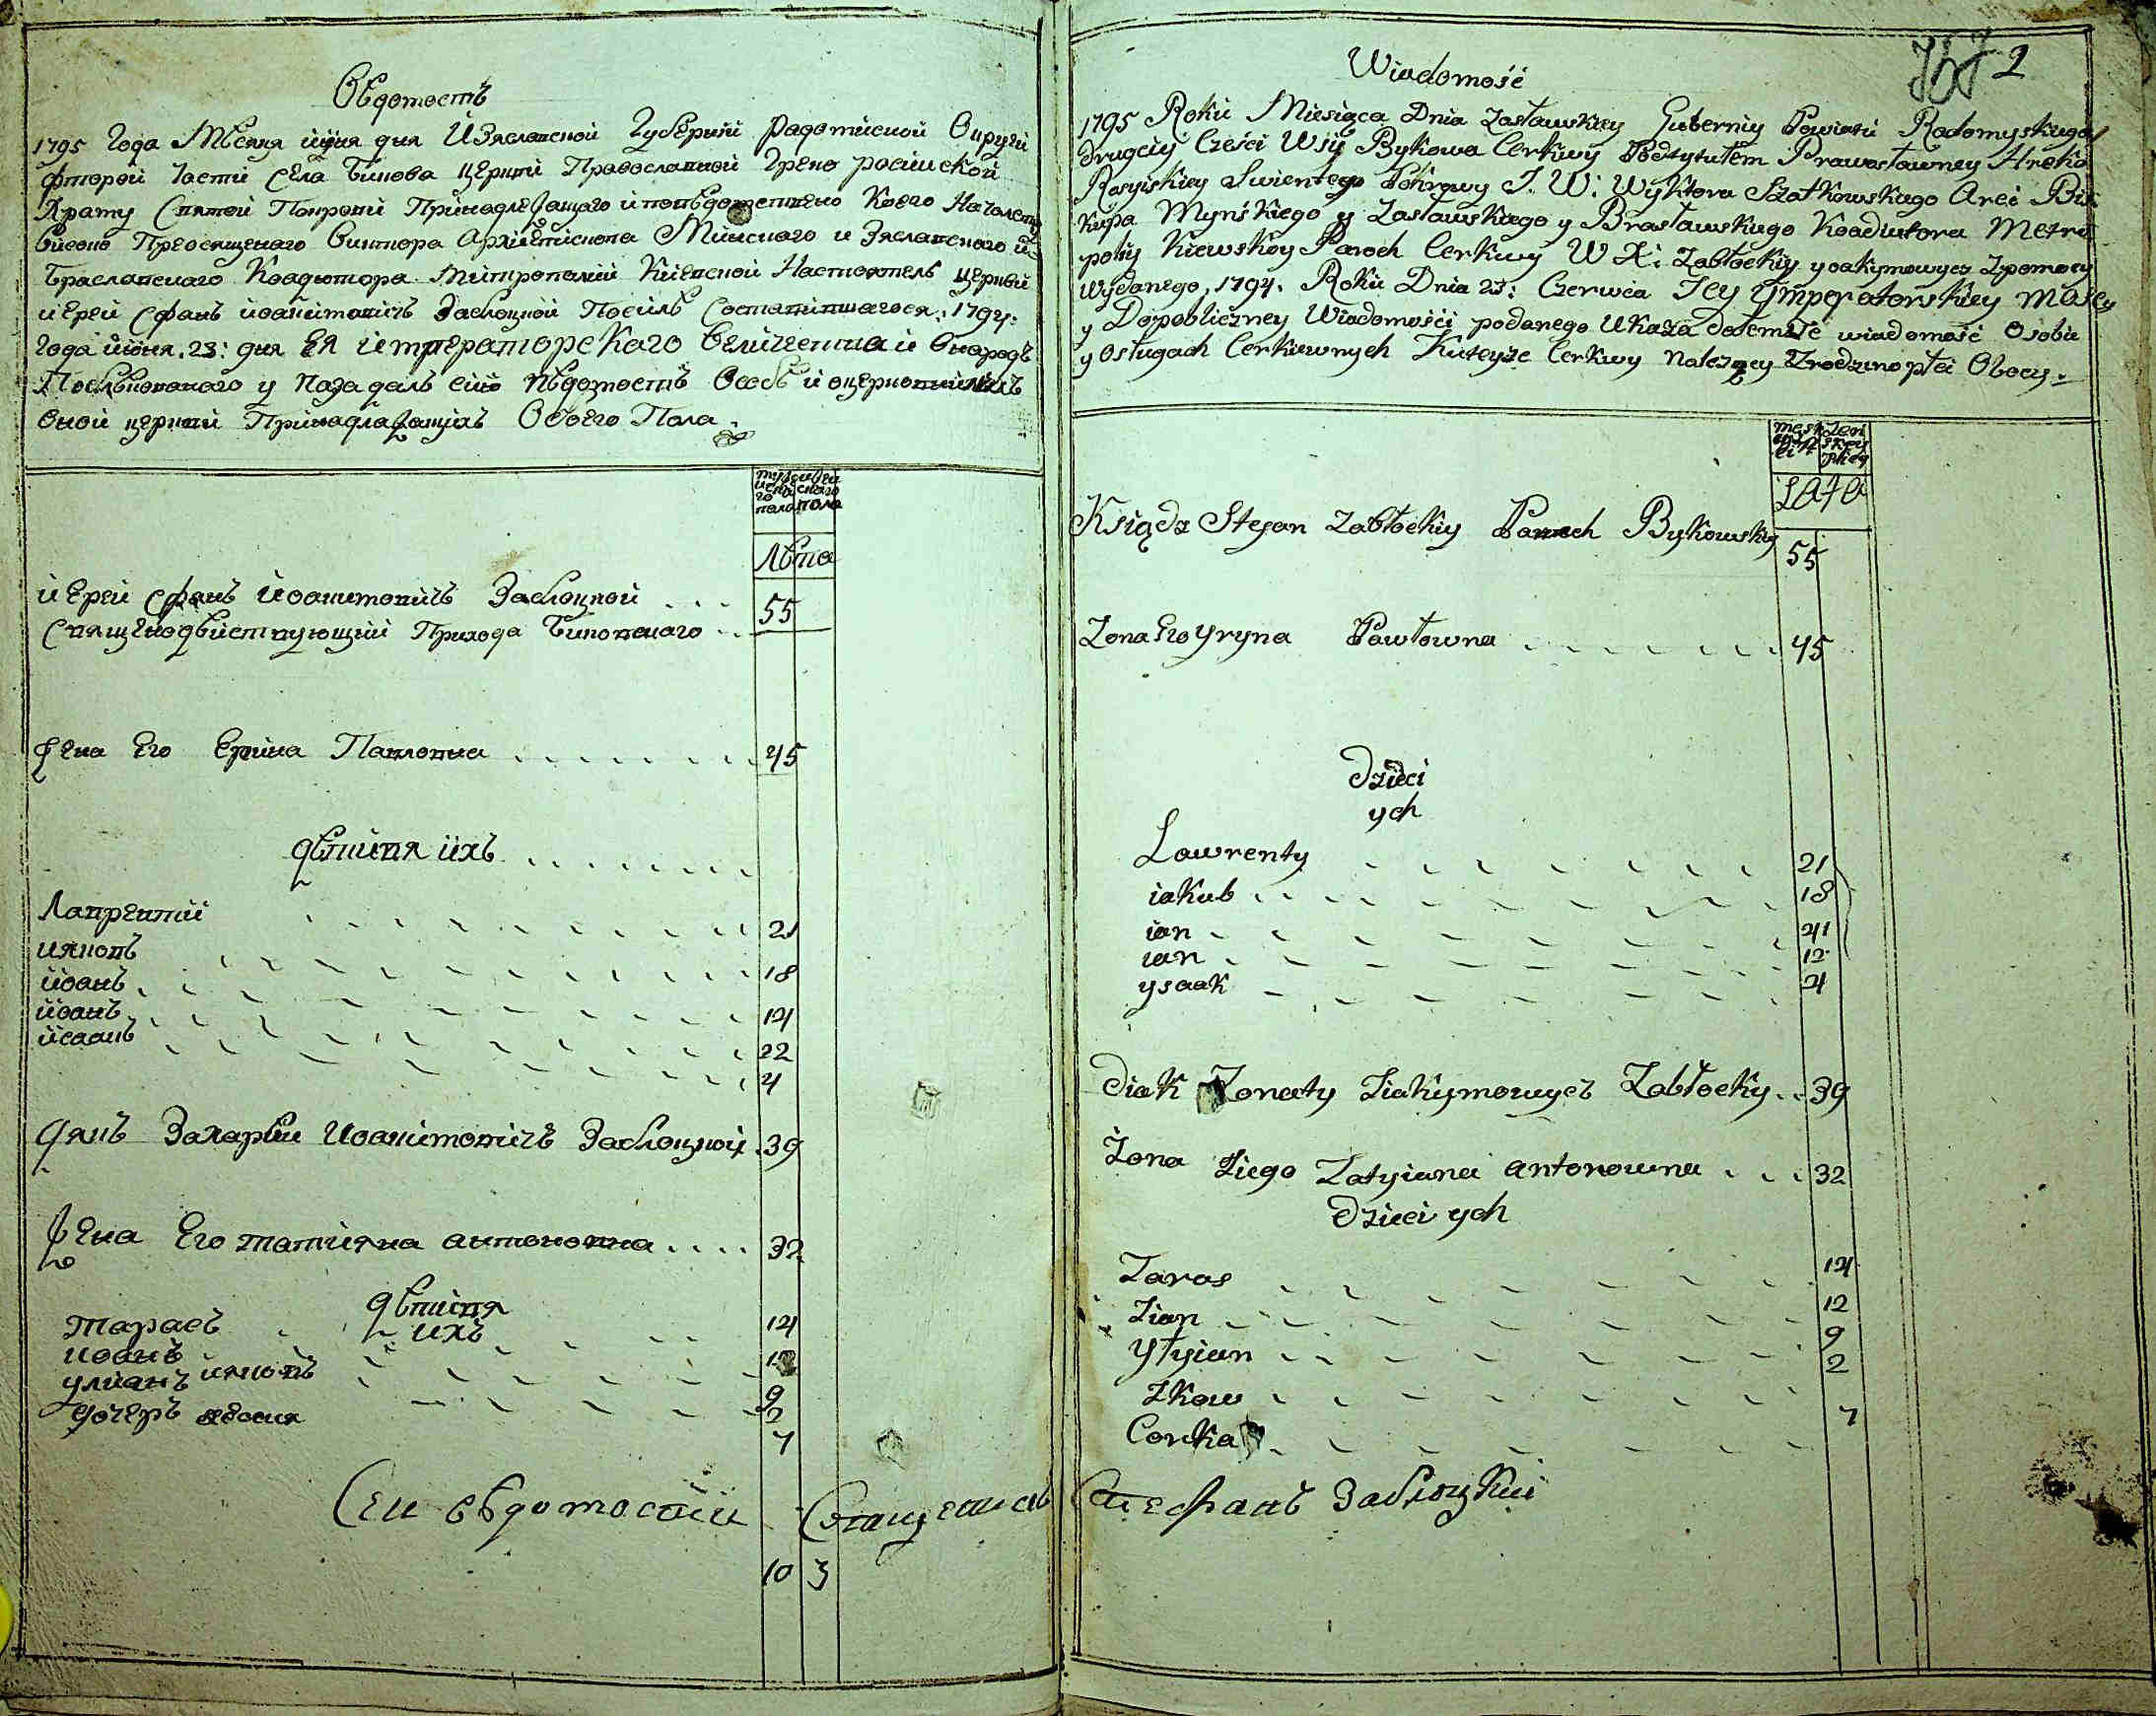 Вѣдомость
1795 Года Мѣсяця июня дня Изяславской Губернии Радомиской Округи
фторой Части Села Бикова церкви Православной Греко росииской
Храму Святой Покрови Принадлежащаго и повѣдомствено Коего Началст
Преосященаго Виктора Архиепископа Минскаго и Зяславского и
Браславскаго Коадютора Митрополии Киевской Настоятель церкви
иерей Сфанъ иоакимовичъ Заблоцкой Посилѣ Состоявшагося: 1794:
Года июня. 23: дня ЕЯ императорскаго величества и
указа далъ сию вѣдомость Особѣ и
оной церкви Принадлежащихъ Обоего Пола.
мужескаго пола
женскаго пола
Лѣта
иерей сфанъ иоакимовичъ Заблоцкой 55
Священодѣйствующий Прихода Биковскаго
жена Его Ерина Павловна 45
дѣтийя ихъ
Лаврентий 21
ияковъ 18
иоанъ 14
иоанъ 22
исаакъ 4
дякъ Захарѣи Иоакимовичъ Заблоцкой 39
жена Его татияна антоновна 32
дѣтийя
ихъ
тарасъ 14
иоанъ
улиянъ ияковъ 9
2
дочеръ 7
Сеи вѣдомостии Священикъ Стефанъ Заблоцкии
10 3
Wiadomość
2
1795 Roku Miesiąca Dnia Zasławskiey Guberniy Powiatu Radomyskugo
drugciy Cześci Wsiy Bykowa Cerkwy Podtytułem Prawosławney Hreko
Rosyiskiey Swientego Pokrowy J. W: Wyktora Szatkowskiego Arci Bis
kupa Mynśkiego y Zasławskiego y Brasławskugo Koadiutora Metro
poliy Kiewskoy Paroch Cerkwy W X: Zabłockiy yoakymowycz Zpomocy
wydanego, 1794. Roku Dnia 23: Czerwca Jey Ymperatorskiey Mości
y Dopobliczney Wiadomości podanego Ukaza dałem tę wiadomość Osobie
y osługach Cerkiewnych Kuteyże Cerkwy Należney Zrodzino płci Obocy.
mesk
płci
żen
skiey
płciy
LATA
Ksiądz Stefan Zabłockiy Paroch Bykowskiy 55
Zona Ego yryna Pawłowna 45
Dzieci
ych
Lawrenty 21
iakub 18
ian 14
ian 12
ysaak 4
Diak Zonaty Jiakymowycz Zabłocky 39
Żona Jiego Tatyiana antonowna 32
Dzieci ych
Taras 14
Jian 12
Yłyian 9
Jkow 2
Corka 7